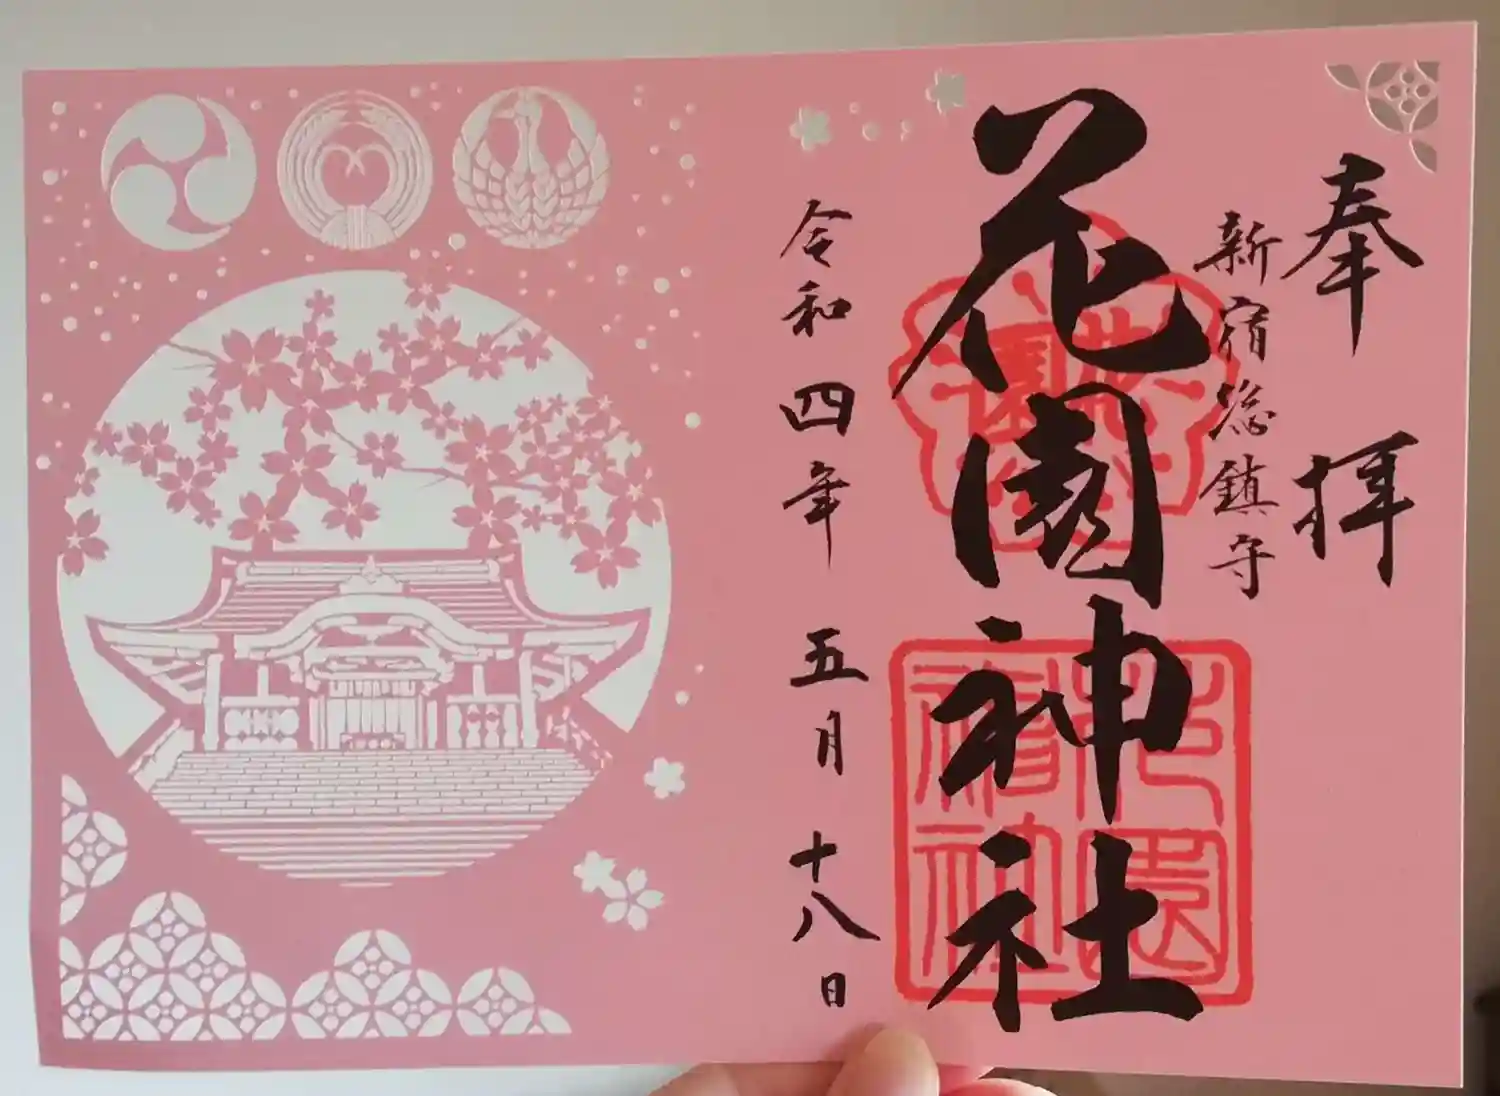 奉拝
新宿総鎮守
花園神社
令和四年五月十八日
花園神社